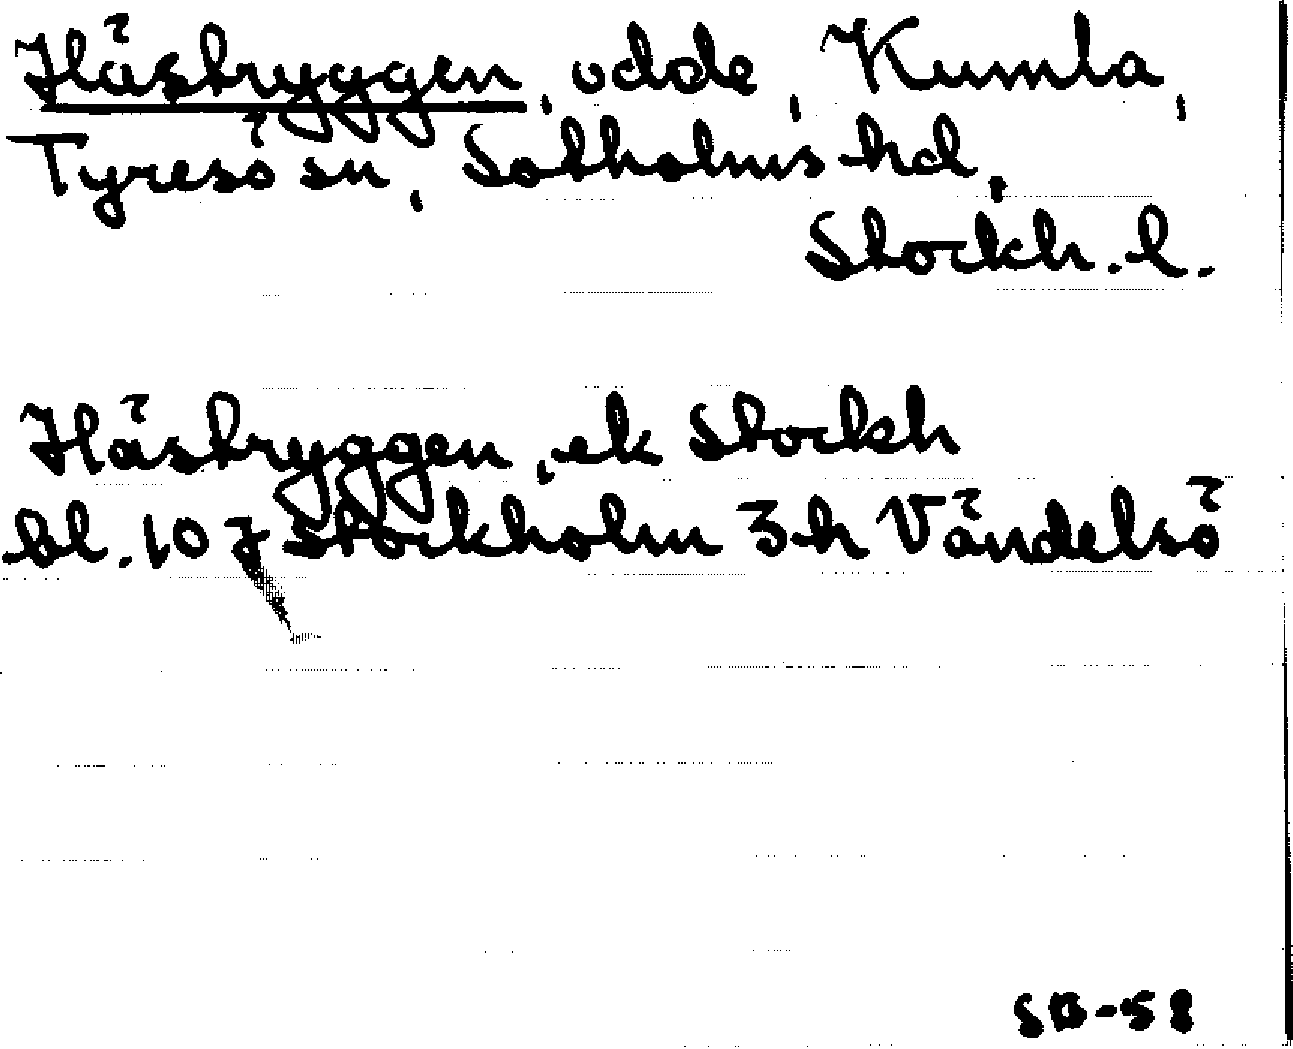 Häsbryggen, udde, Kumla,
Tyresö sn, Sotholms hd,
Stockh. l.
Häsbryggen, ek Stockh
bl. 10 J Stockholm 3 h Vändelsö
SB-58